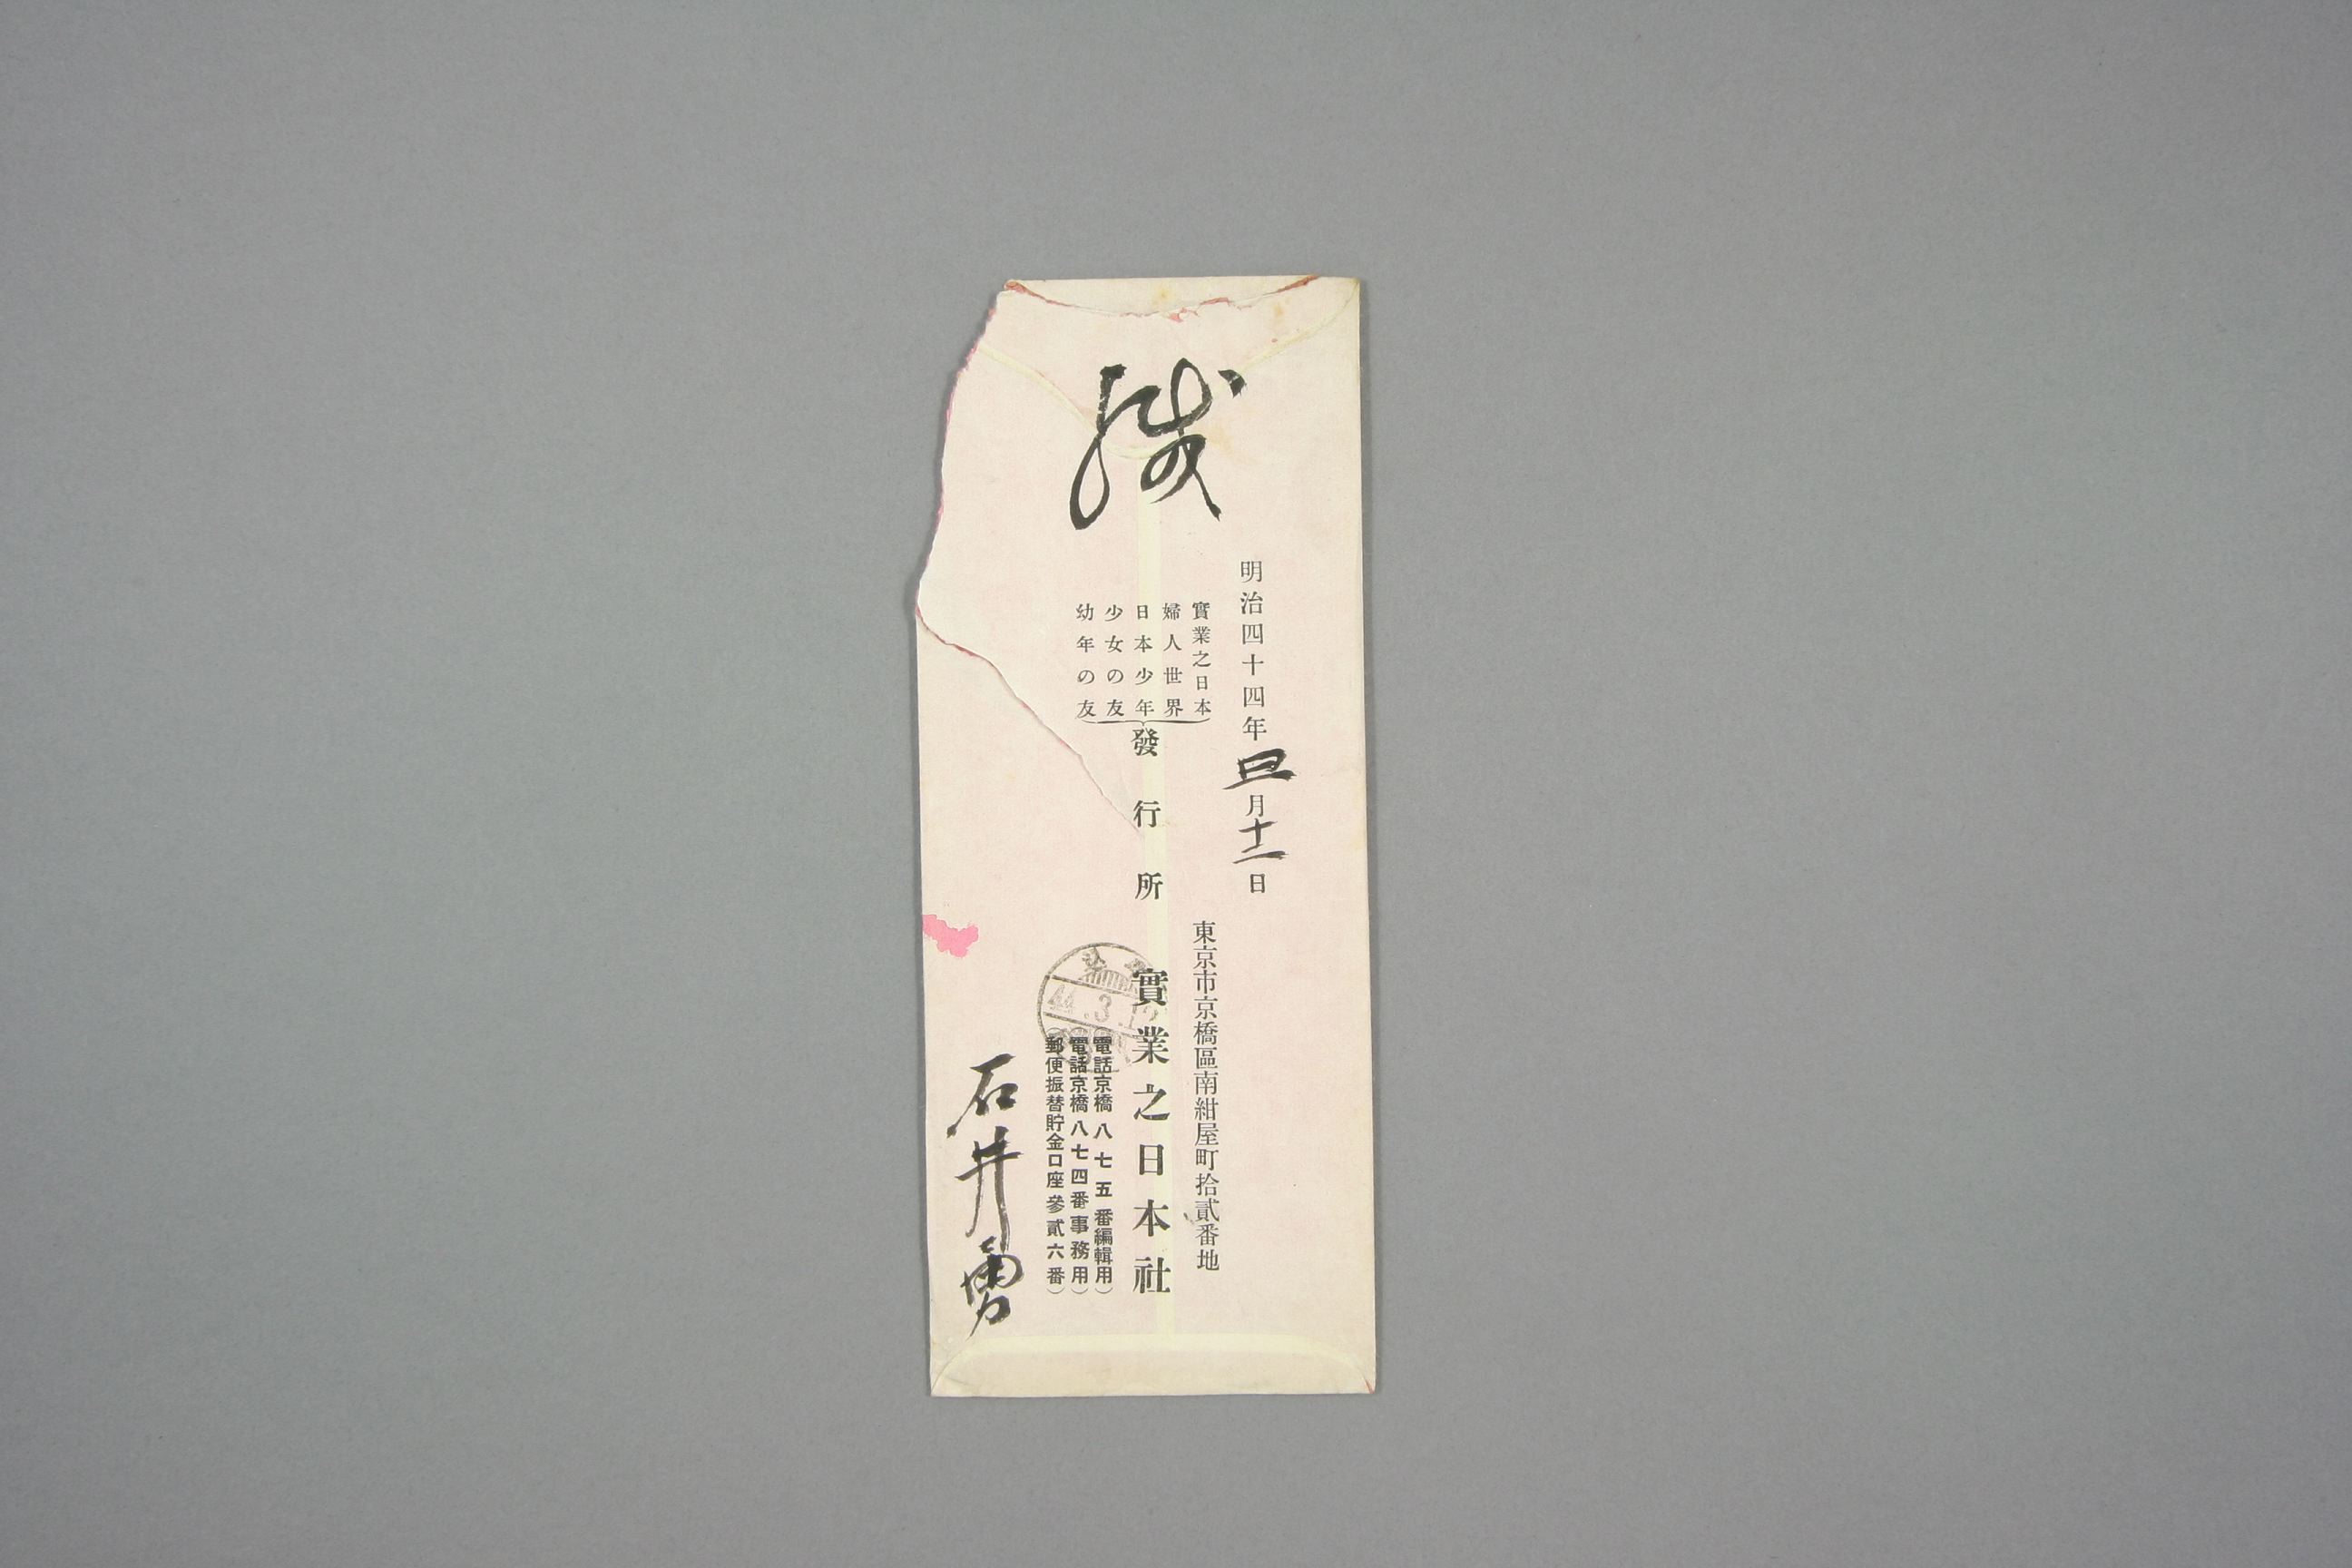 緘
明治四十四年三月十二日
東京市京橋區南紺屋町拾貳番地
實業之日本
婦人世界
日本少年
少女の友
幼年の友
發行所 實業之日本社
(電話京橋八七五番編輯用)
(電話京橋八七四番事務用)
(郵便振替貯金口座參貳六番)
石井勇
44.3.12